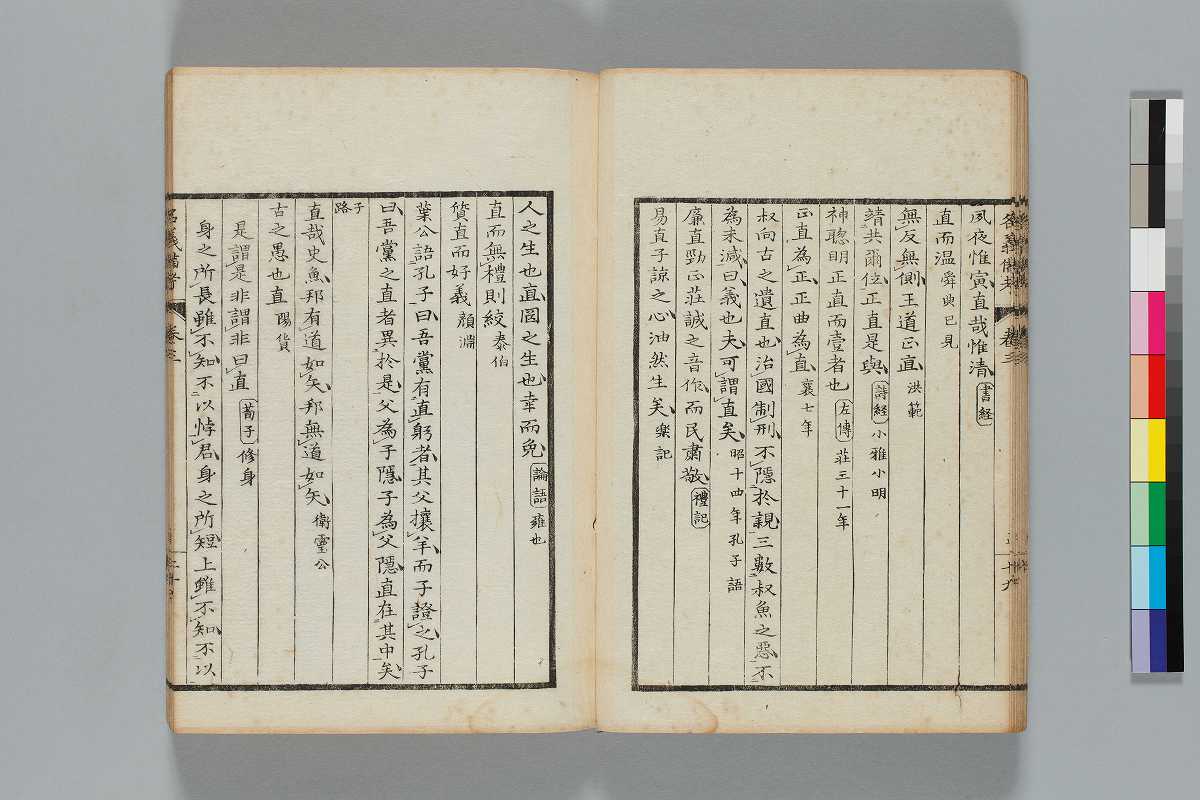 夙夜惟寅直哉惟清 書経
直而温 舜典已見
無反無側王道正直 洪範
靖共爾位正直是與 詩経 小雅小明
神聰明正直而壹者也 左傳 莊三十一年
正直為正正曲為直 襄七年
叔向古之遺直也治國制刑不隱於親三數叔魚之惡不
為末減曰義也夫可謂直矣 昭十四年孔子語
廉直勁正莊誠之音作而民肅敬 禮記
易直子諒之心油然生矣 楽記
人之生也直罔之生也幸而免 論語 雍也
直而無禮則絞 泰伯
質直而好義 顔淵
葉公語孔子曰吾黨有直躬者其父攘羊而子證之孔子
曰吾黨之直者異於是父為子隱子為父隱直在其中矣
子路
直哉史魚邦有道如矢邦無道如矢 衛靈公
古之愚也直 陽貨
是謂是非謂非曰直 荀子 修身
身之所長雖不知不以悖君身之所短上雖不知不以
卷三